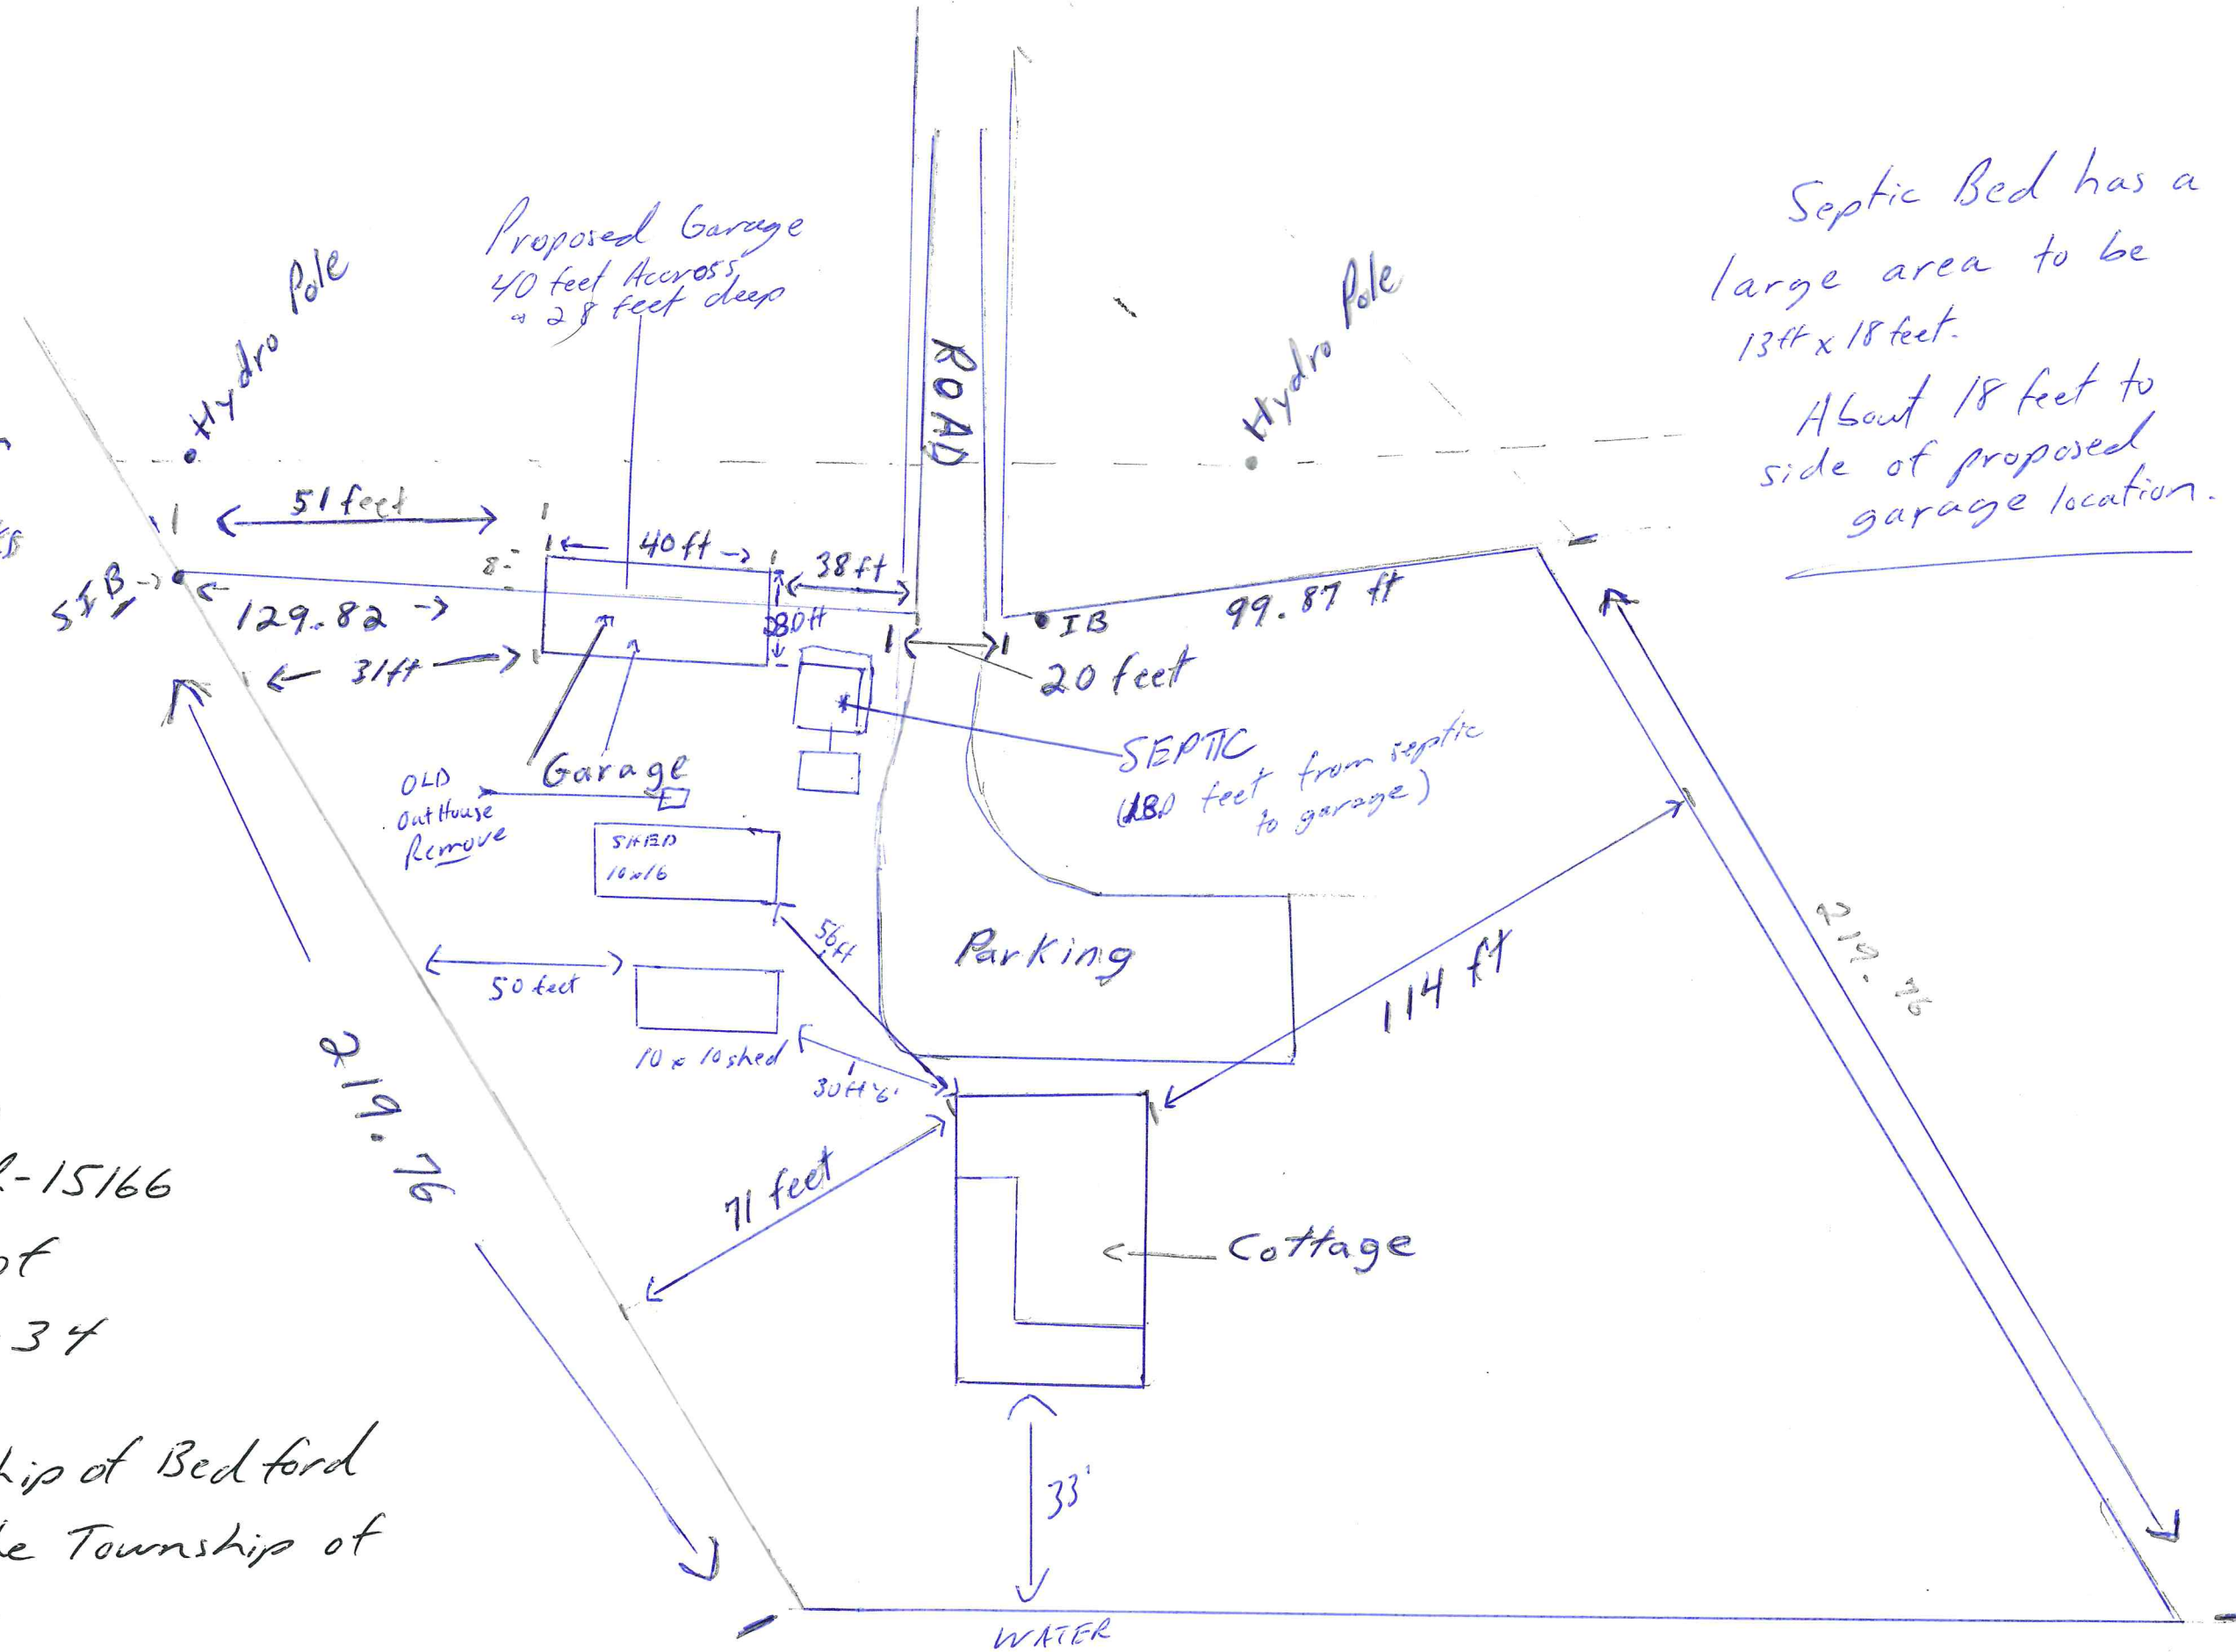 Septic Bed has a
large area to be
13ft x 18 feet.
About 18 feet to
side of proposed
garage location.
Proposed Garage
40 feet Accross
28 feet deep
Hydro Pole
Hydro Pole
ROAD
51 feet
40ft
8
38ft
SIB
129.82
99.87 ft
IB
31ft
20 feet
SEPTIC
feet from septic
to garage)
Garage
OLD
OutHouse
Remove
SHED
10x16
56
ft
Parking
114 ft
219.76
50 feet
10 x 10 shed
30ft 6'
219.76
71 feet
Cottage
-15166
34
hip of Bedford
Township of
33'
WATER